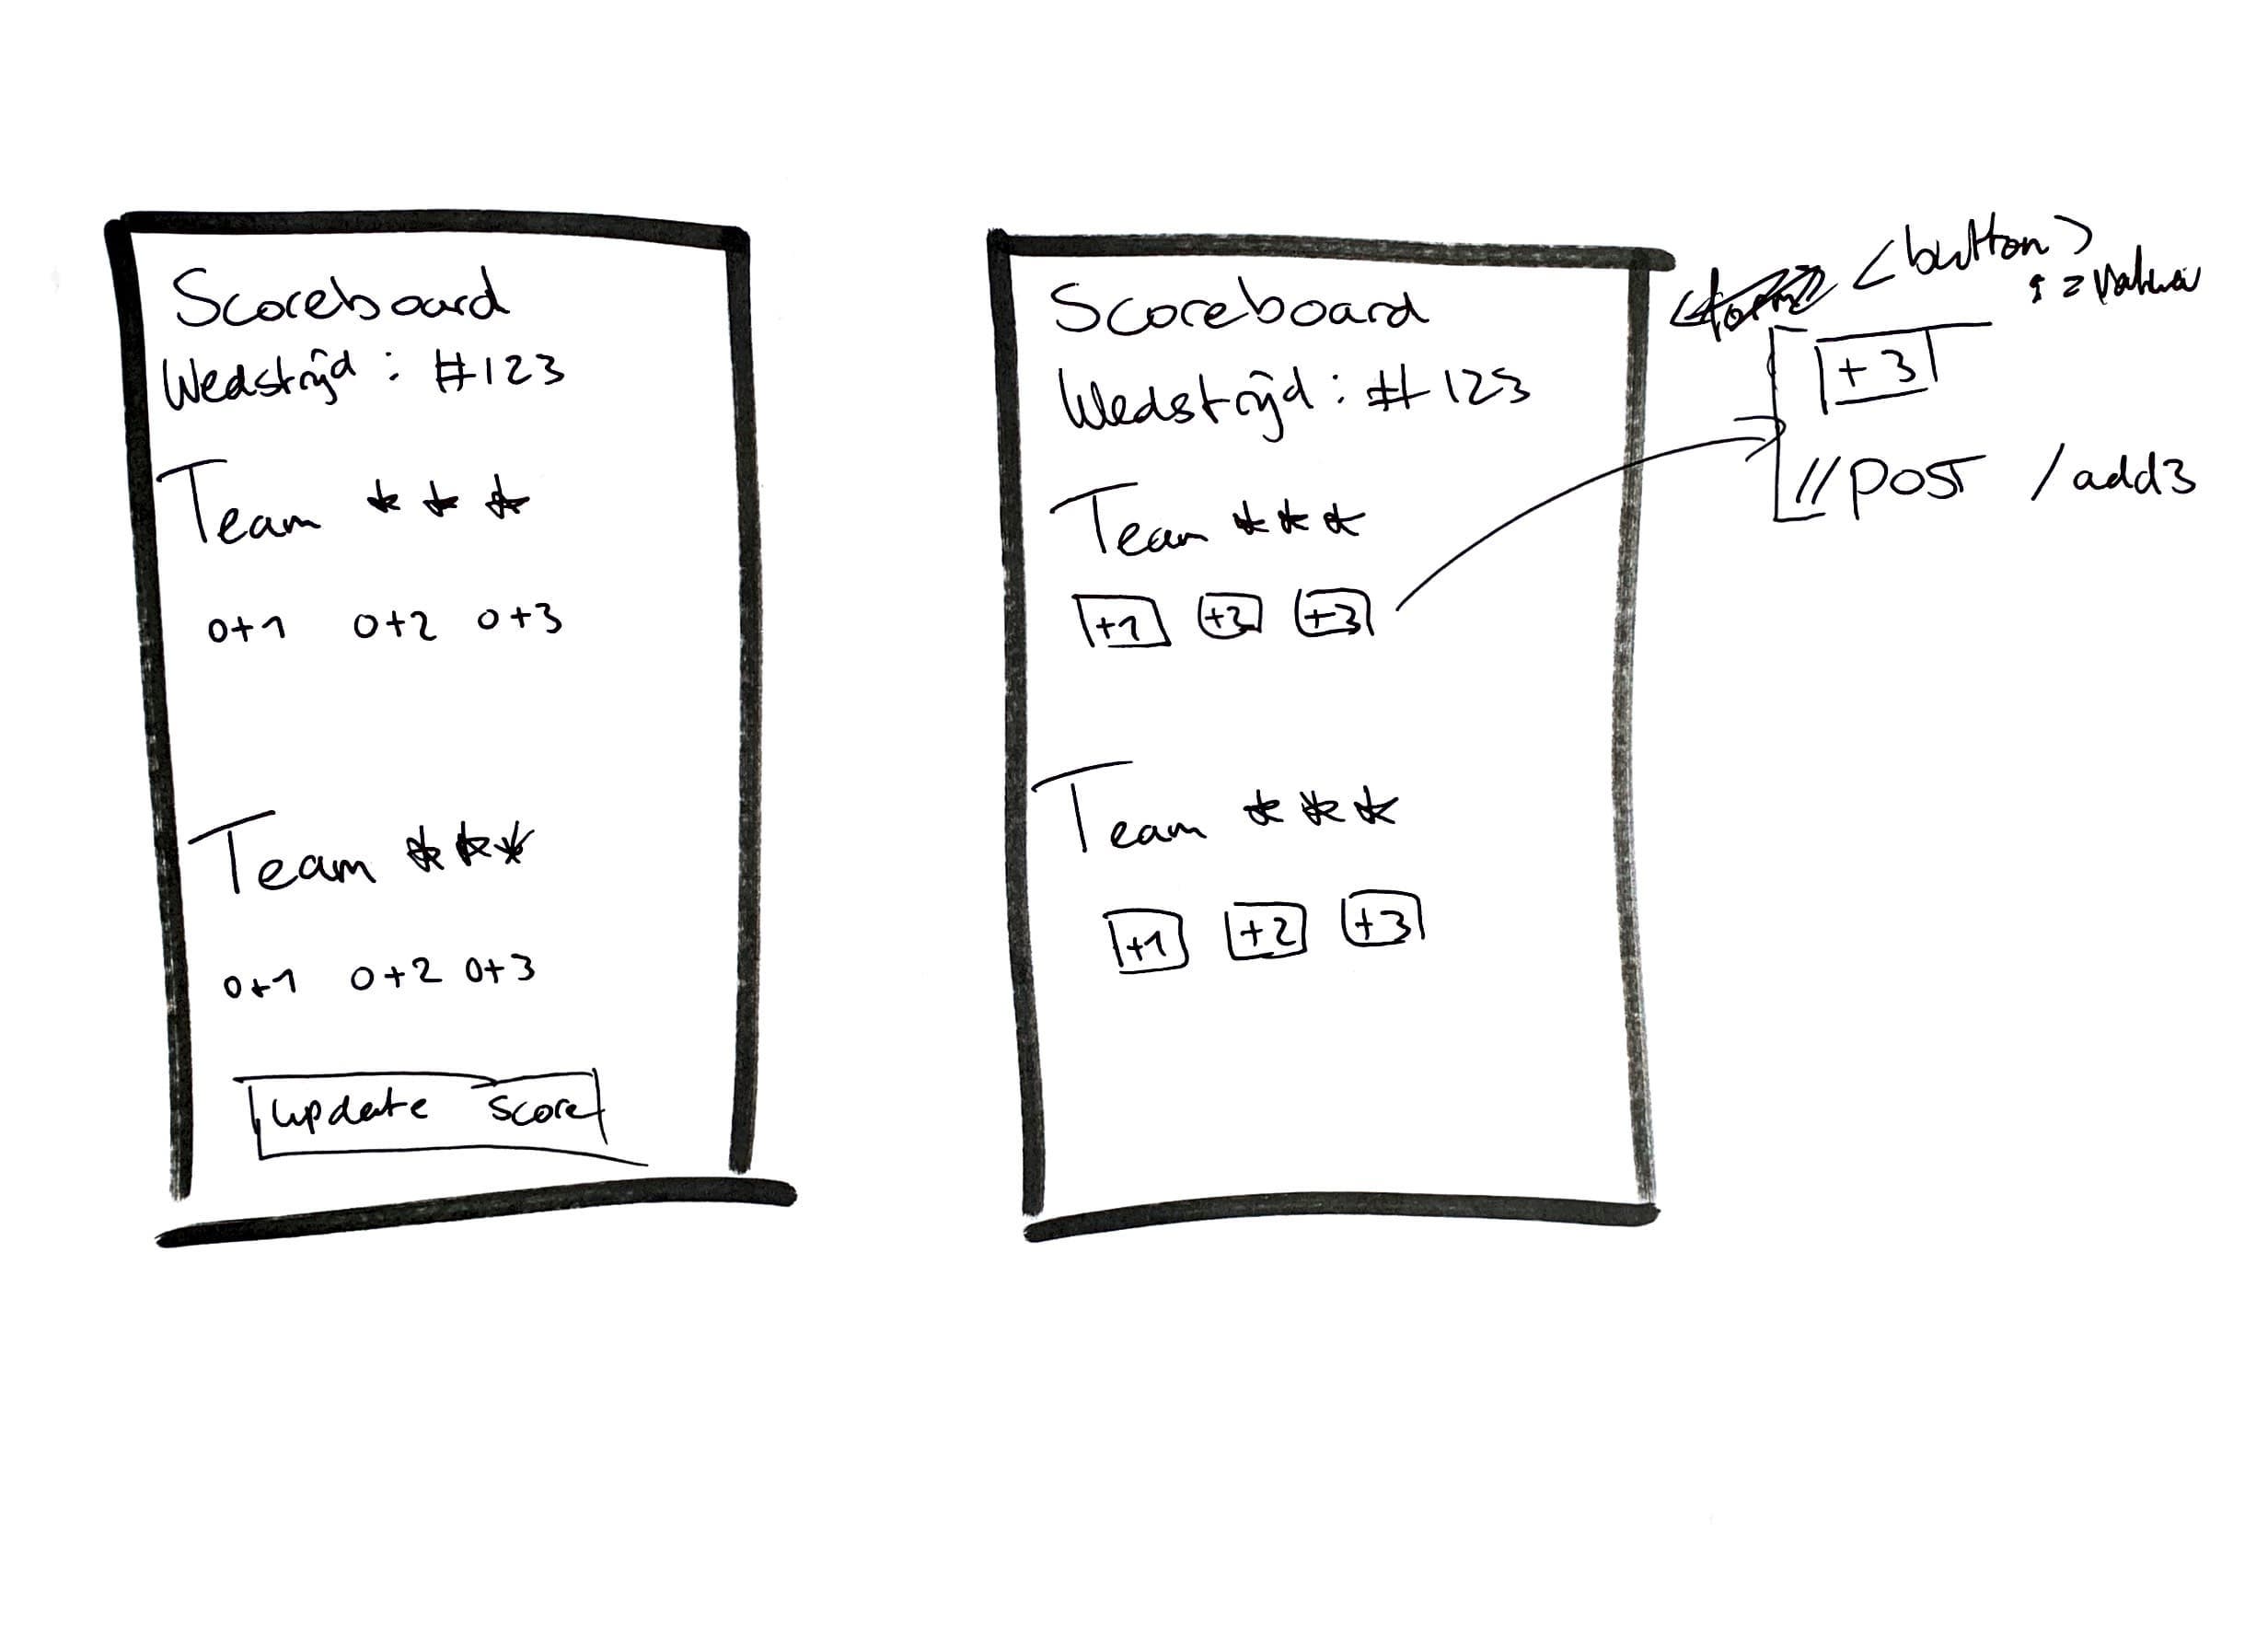 Scoreboard
Wedstrijd : #123
Team * * *
o+1 o+2 o+3
Team * * *
o+1 o+2 o+3
update score
Scoreboard
Wedstrijd : #123
Team * * *
+1 +2 +3
Team * * *
+1 +2 +3
<form> <button>
+3
// POST /add3